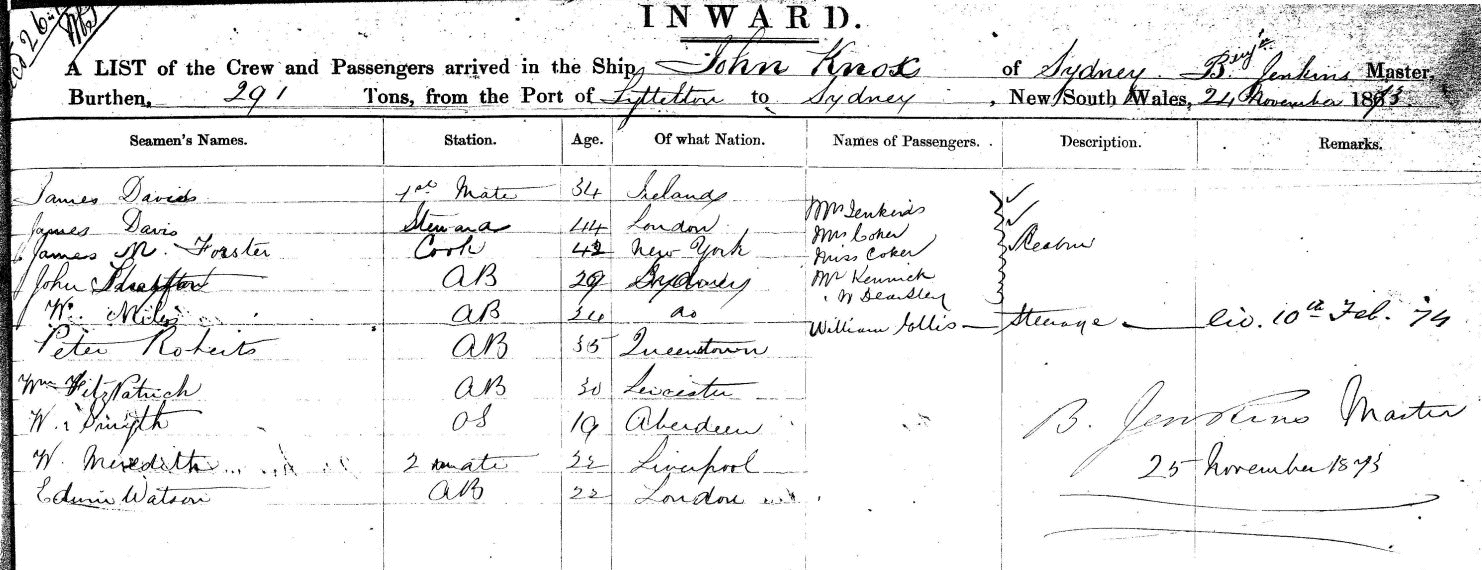 INWARD.
A LIST of the Crew and Passengers arrived in the Ship John Knox of Sydney. Benjn Jenkins Master,
Burthen, 291 Tons, from the Port of Lyttelton to Sydney, New South Wales, 24 November 1873.
Seamen's Names. Station. Age. Of what Nation. Names of Passengers. Description. Remarks.
James Davids 1st Mate 34 Ireland
Mrs Jenkins
James Davis Steward 44 London
Mrs Coker
James M. Forster Cook 42 New York
Miss Coker
John AB 29 Sydney
Mr Kennick
W Beardsley
Wm. Miles AB 34 do
William Gollis Steerage 10th Feb. 74
Peter Roberts AB 35 Queenstown
Wm FitzPatrick AB 30 Leicester
W. Smyth OS 19 Aberdeen
B. Jenkins Master
W. Meredith 2 mate 22 Liverpool
25 November 1873
Edwin Watson AB 22 London